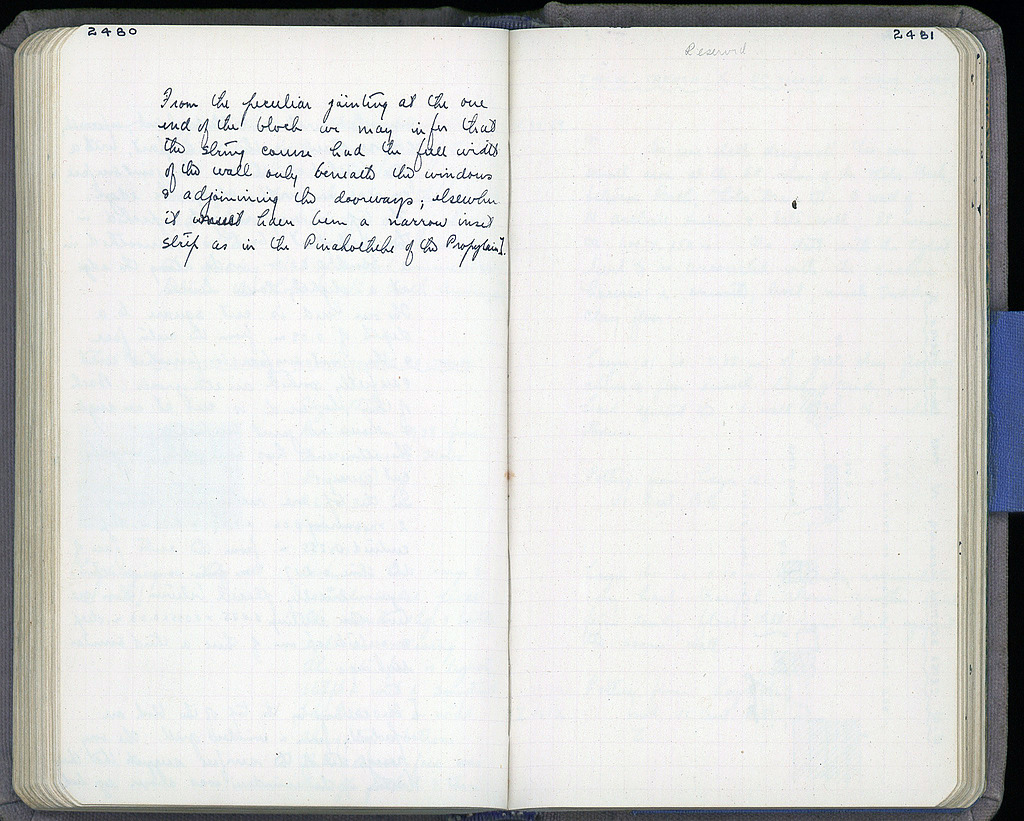 2480
From the peculiar jointing at the one
end of the block we may infer that
the string course had the full width
of the wall only beneath the windows
& adjoining the doorways; elsewhere
it must have been a narrow inset
strip as in the Pinakotheke of the Propylaia].
2481
Reserved